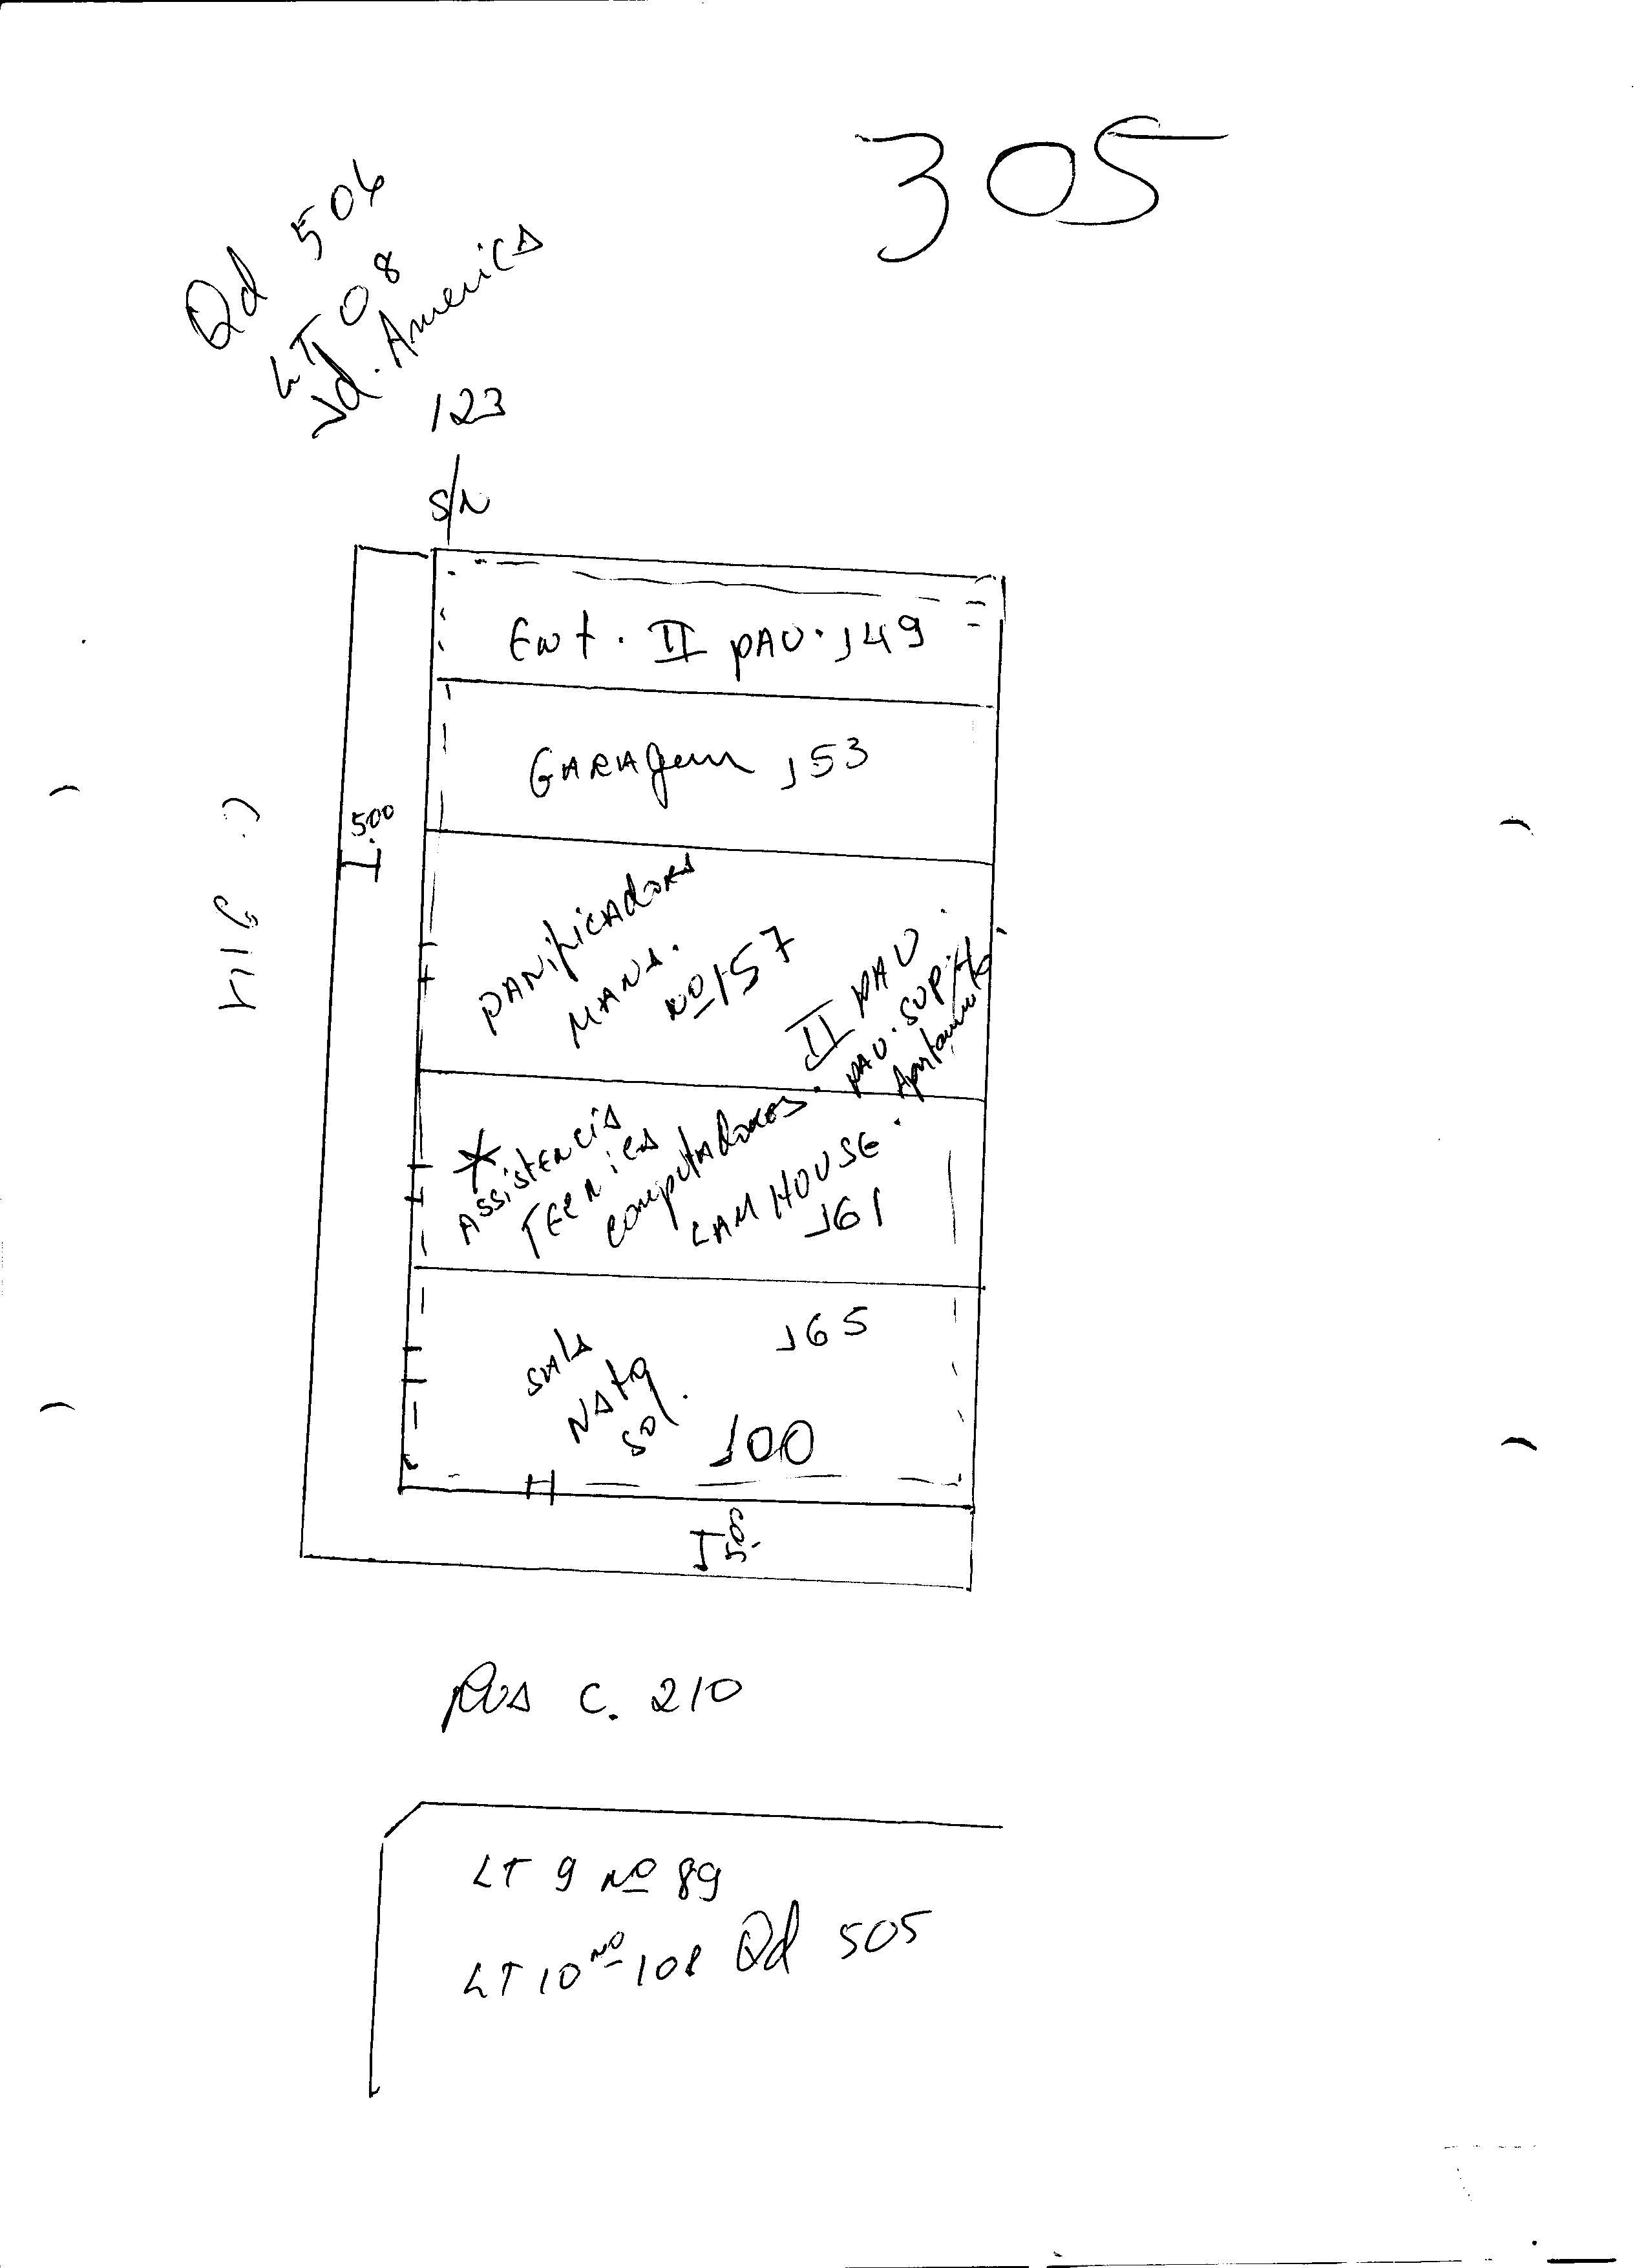 305
Qd 506
LT 08
Jd. America
123
S/N
Ent. II PAV. 149
GARAgem 153
500
C. 914
PANificadora
MANA.
Nº 157
II PAV.
PAV. SUP.
Apartamento
* Assistencia
TECNica
computadores.
LAM HOUSE.
161
165
sala
100
Rua C. 210
LT 9 Nº 89
LT 10 Nº 108 Qd 505